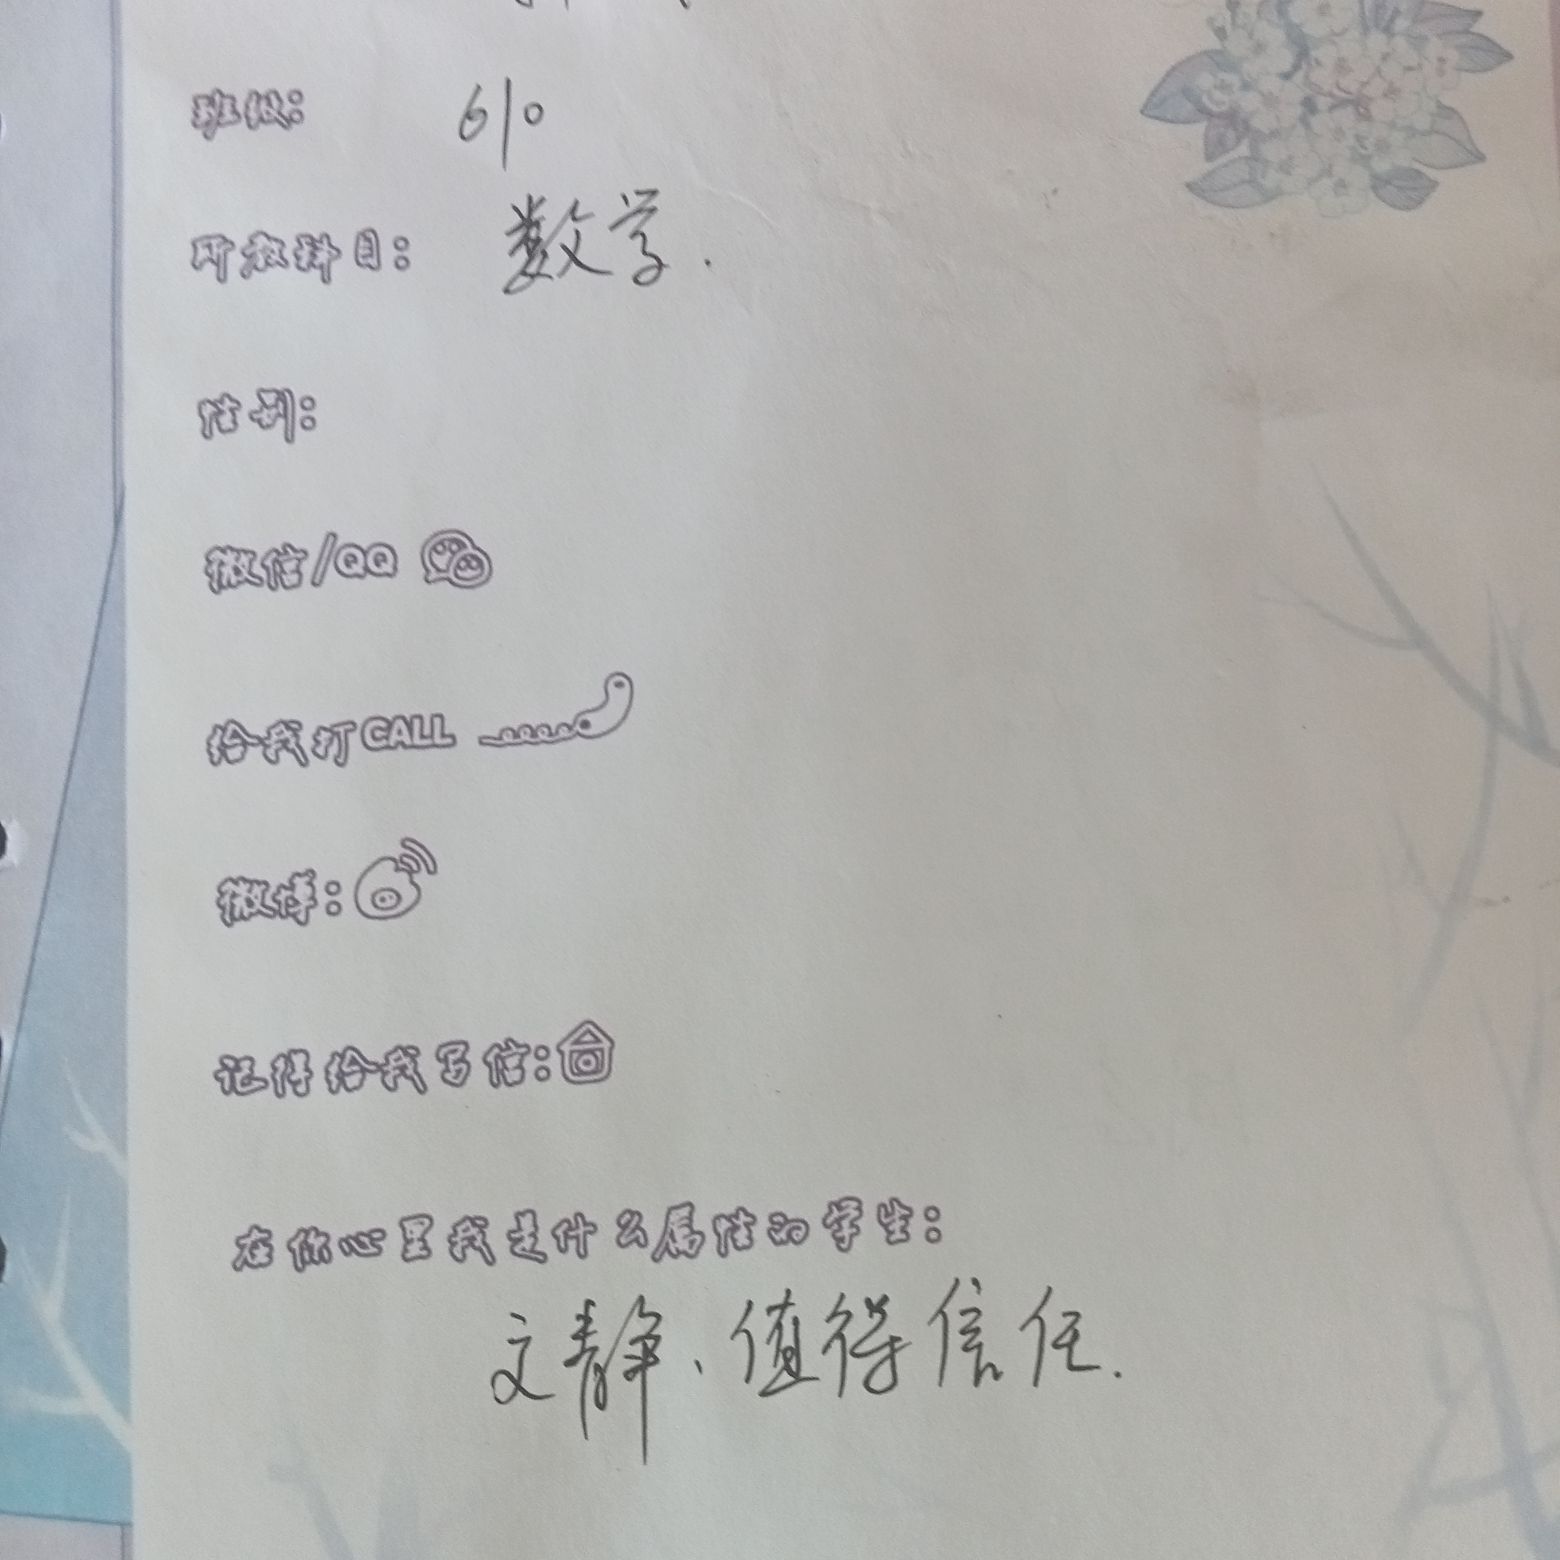 班级: 610
所教科目: 数学.
性别:
微信/QQ
给我打CALL
微博:
记得给我写信:
在你心里我是什么属性的学生:
文静、值得信任.